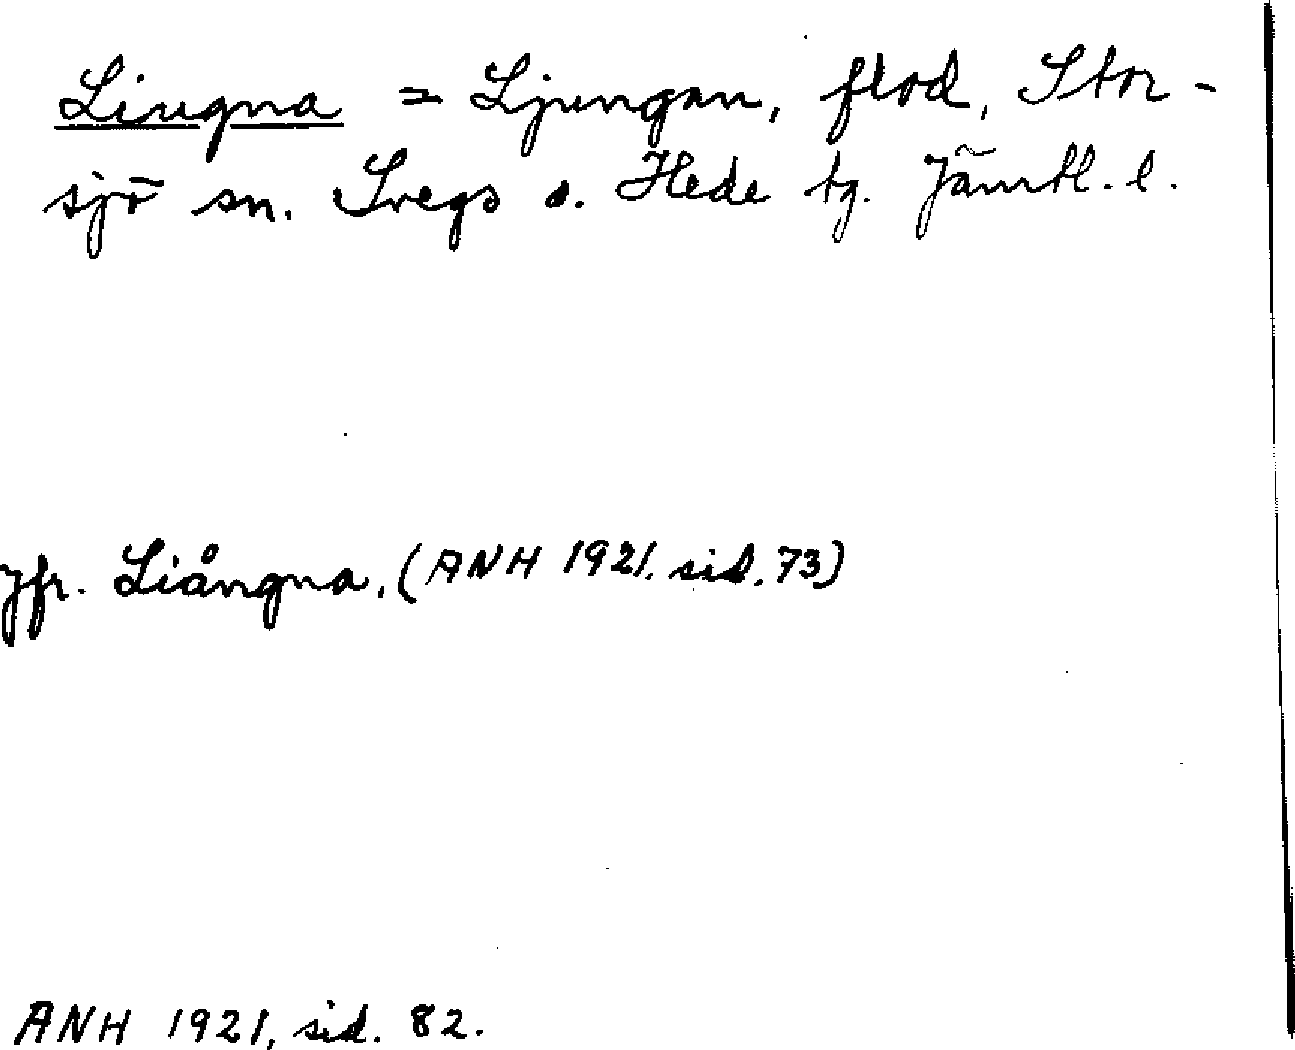 Liugna = Ljungan, flod, Stor-
sjö sn. Svegs o. Hede tg. Jämtl. l.
Jfr. Liångna. (ANH 1921. sid. 73)
ANH 1921, sid. 82.